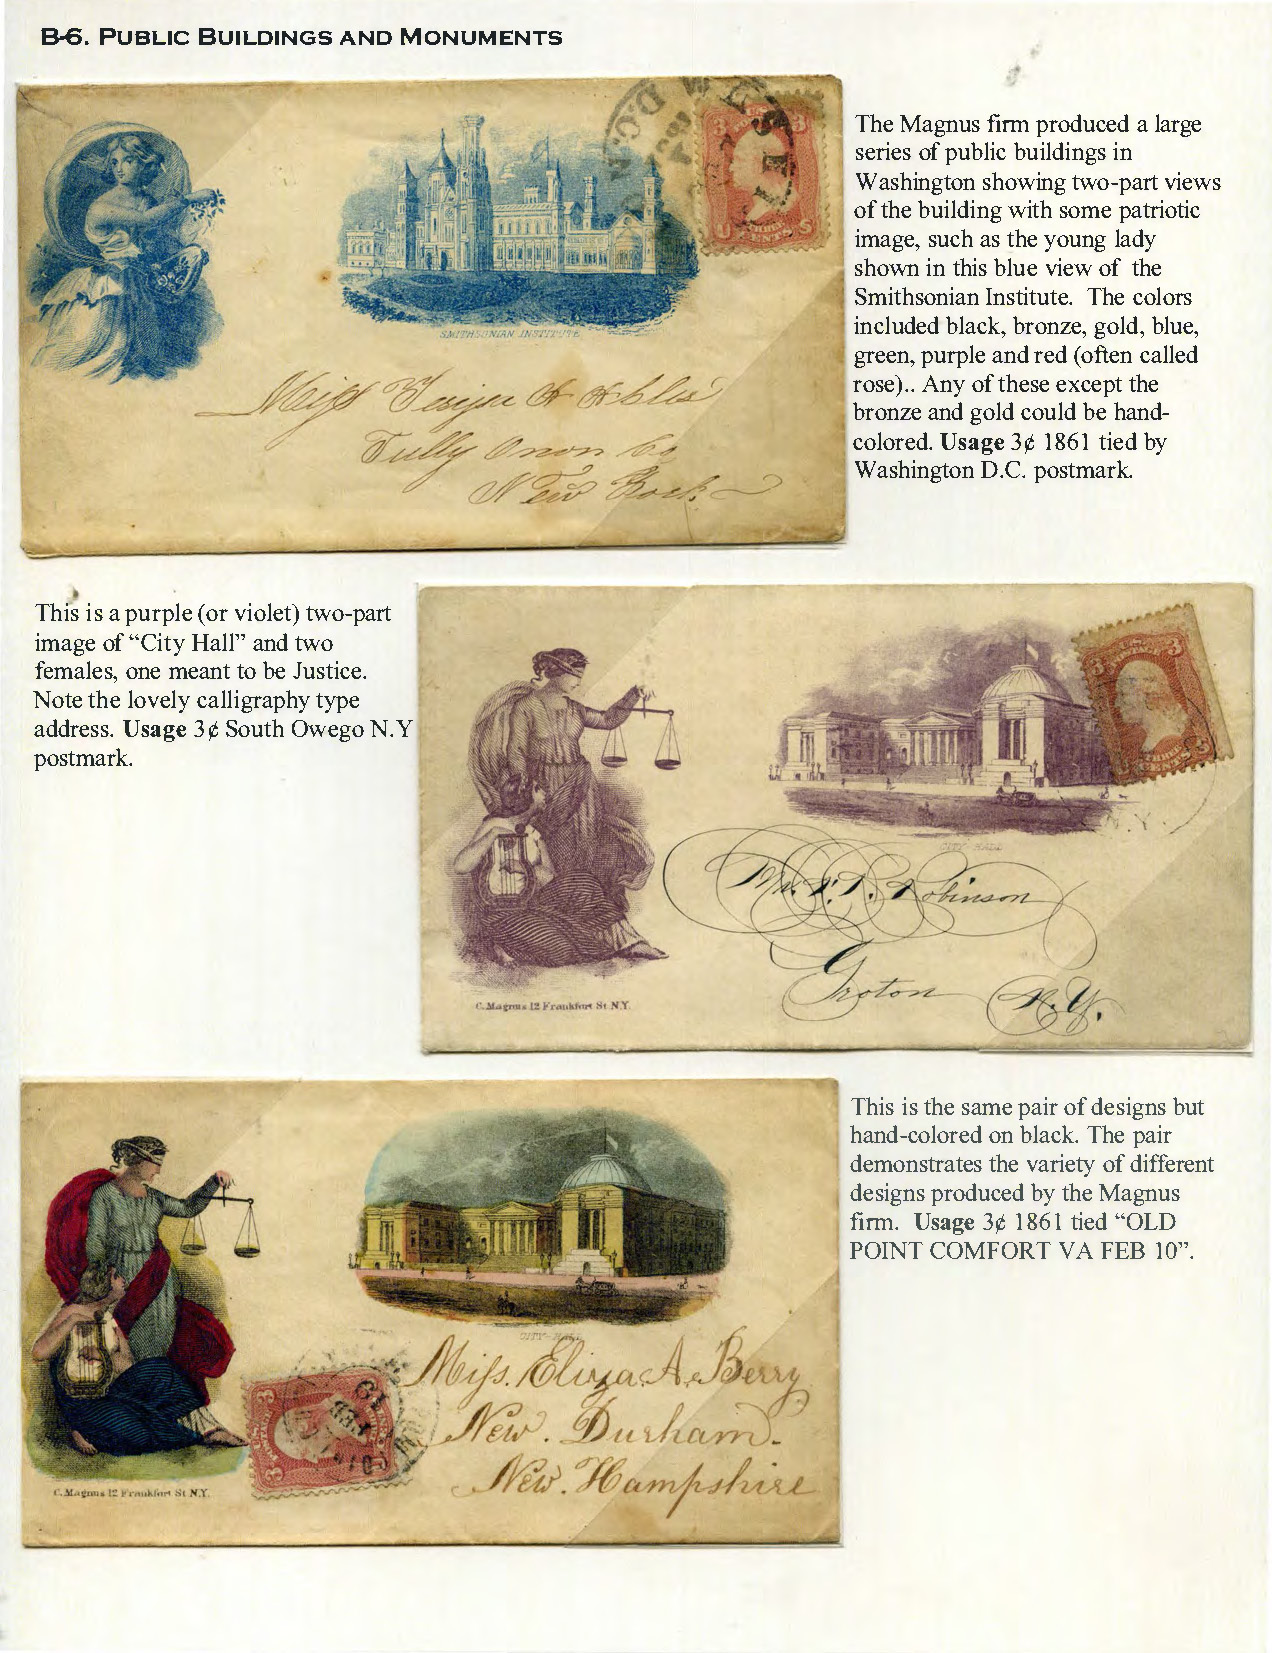 B-6. PUBLIC BUILDINGS AND MONUMENTS
The Magnus firm produced a large
series of public buildings in
Washington showing two-part views
of the building with some patriotic
image, such as the young lady
shown in this blue view of the
Smithsonian Institute. The colors
included black, bronze, gold, blue,
green, purple and red (often called
rose).. Any of these except the
bronze and gold could be hand-
colored. Usage 3¢ 1861 tied by
Washington D.C. postmark.
SMITHSONIAN INSTITUTE
3 3
U S
THREE
CENTS
Miss
Tully Onon Co
New York
This is a purple (or violet) two-part
image of “City Hall” and two
females, one meant to be Justice.
Note the lovely calligraphy type
address. Usage 3¢ South Owego N.Y
postmark.
3 U.S. 3
POSTAGE
THREE
CENTS
N.Y.
CITY-HALL
Robinson
Groton N.Y.
C. Magnus 12 Frankfort St N.Y.
This is the same pair of designs but
hand-colored on black. The pair
demonstrates the variety of different
designs produced by the Magnus
firm. Usage 3¢ 1861 tied “OLD
POINT COMFORT VA FEB 10”.
CITY-HALL
Miss. Eliza A. Berry
New. Durham.
New. Hampshire
C. Magnus 12 Frankfort St N.Y.